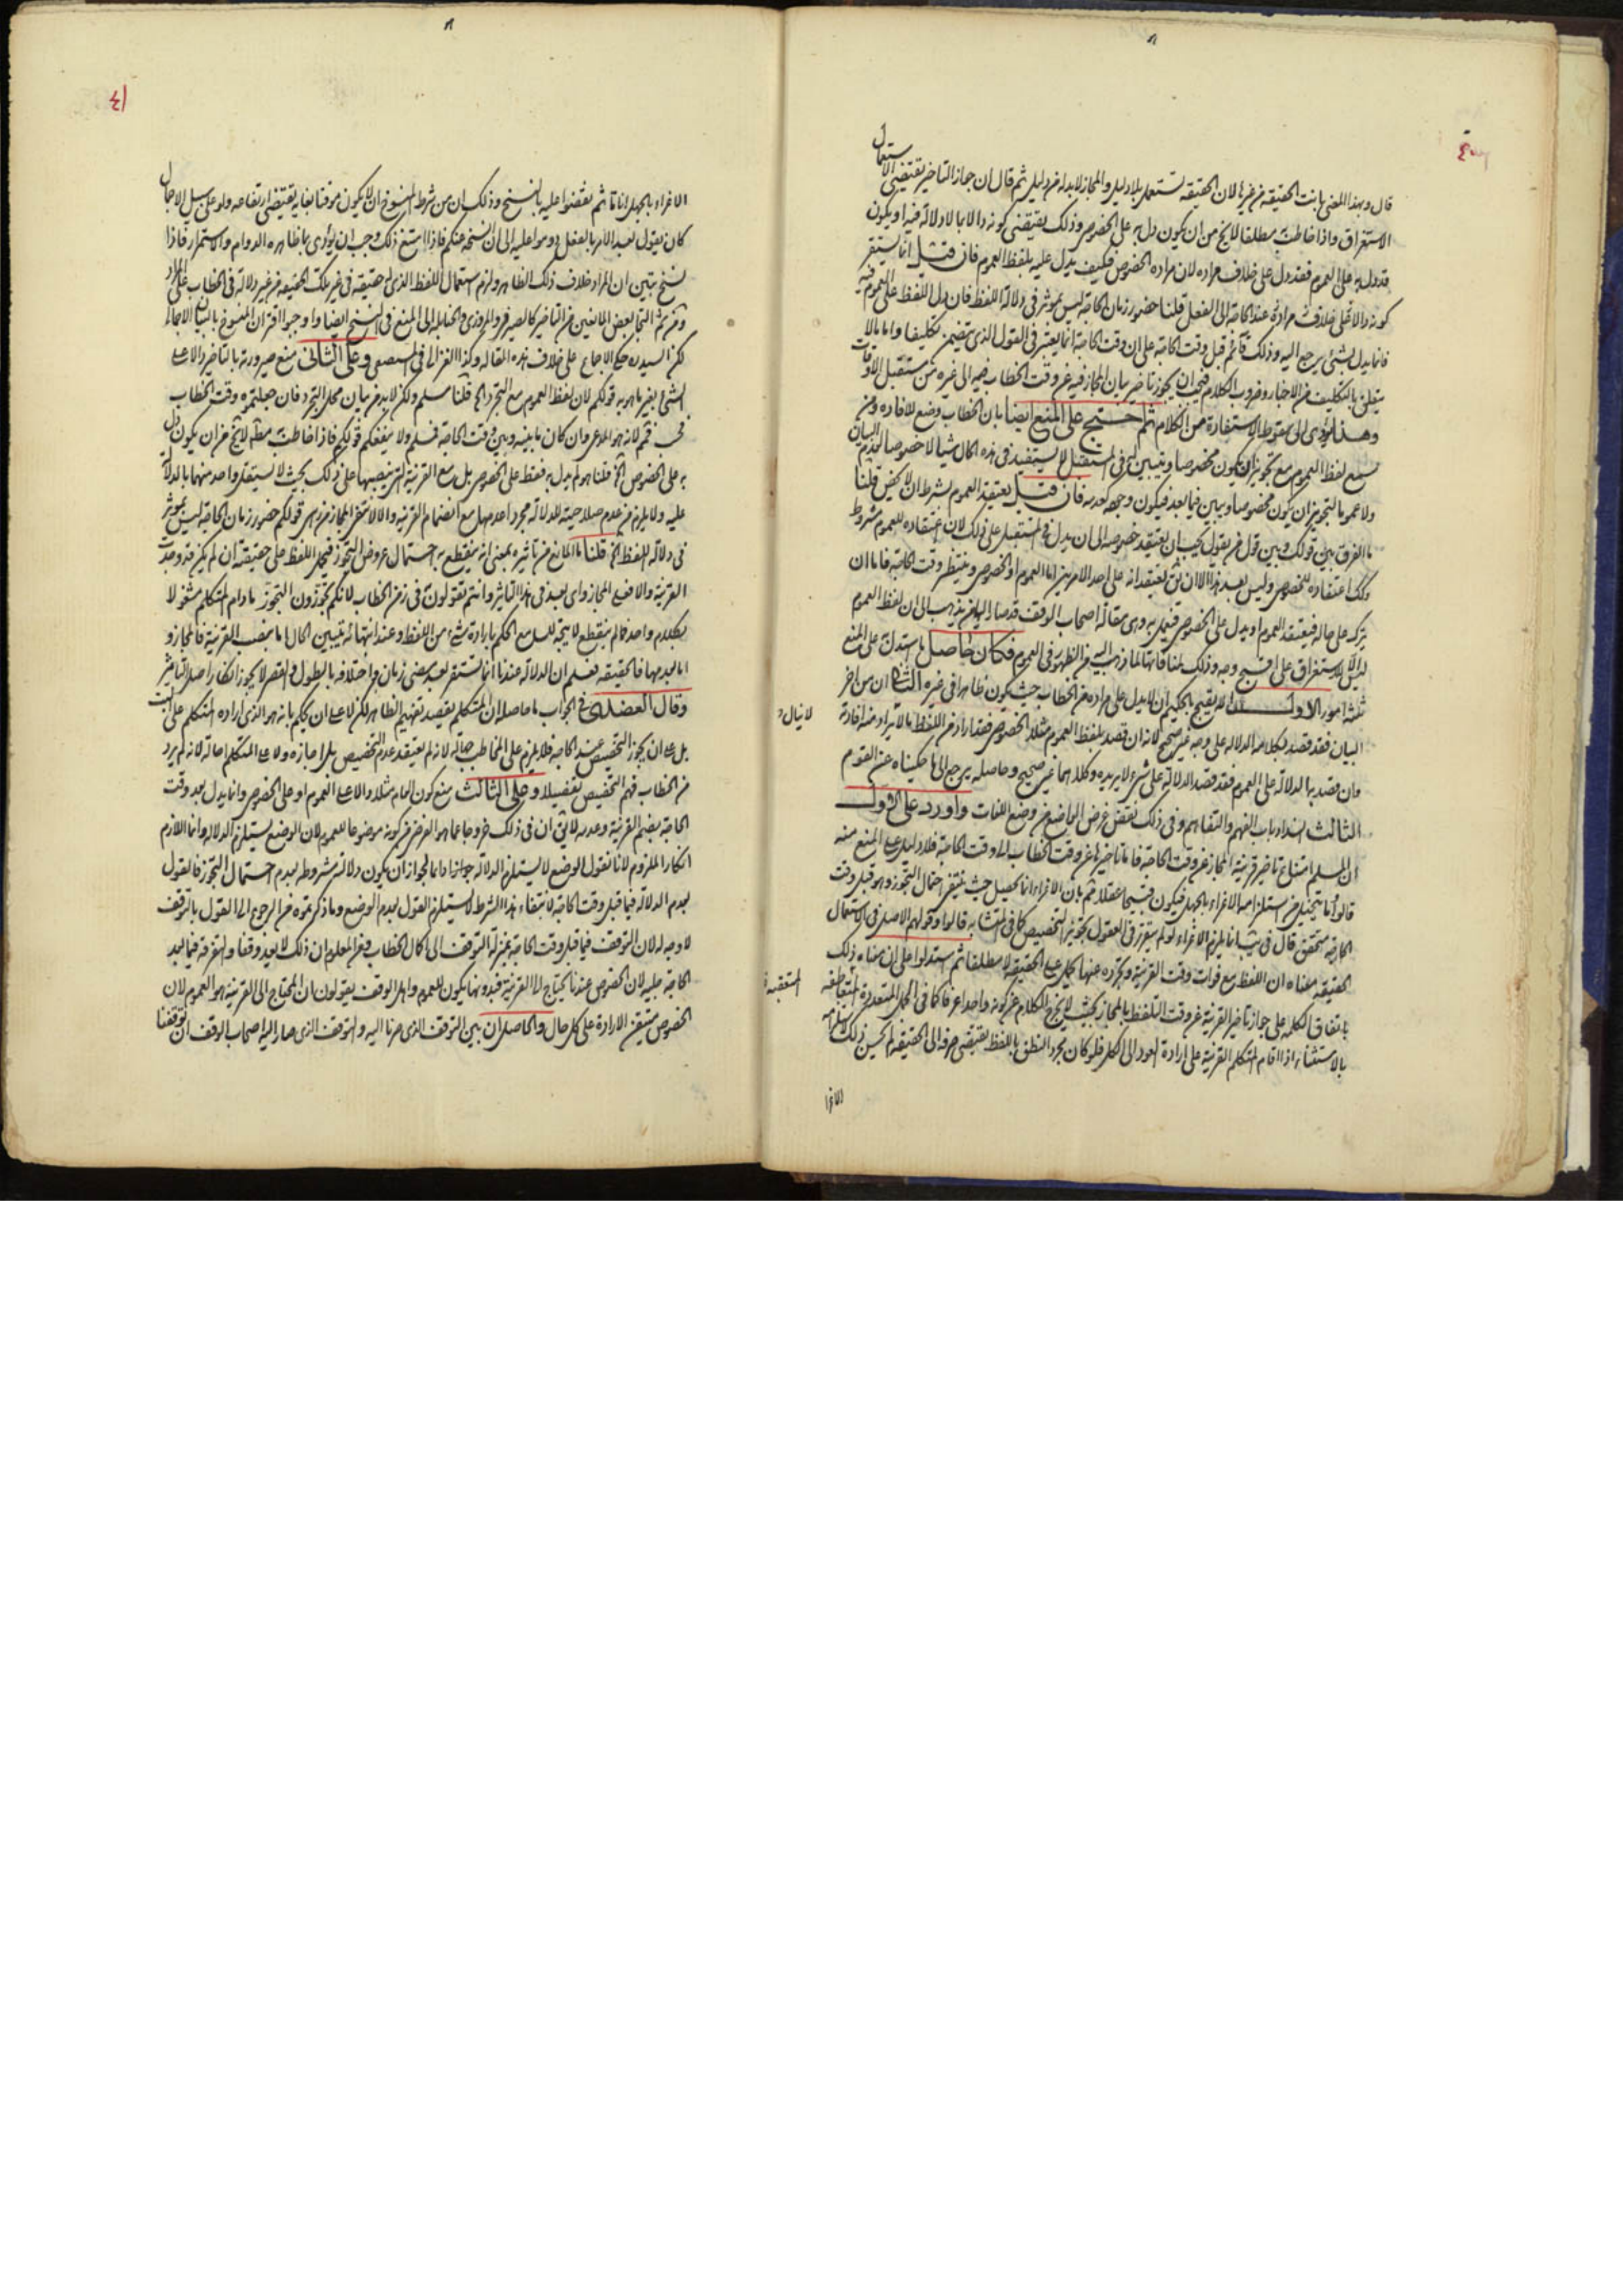 قال وبهذا المعنى بانت الحقيقة من غيرها لان الحقيقة تستعمل بلا دليل والمجاز لابد له من دليل ثم قال ان جواز التاخير يقتضي الاستعمال
الاستغراق واذا خاطب مطلقا لا يخ من ان يكون دل به على الخصوص وذلك يقتضي كونه دالا بما لا دلالة فيه او يكون
قد دل به على العموم فقد دل على خلاف مراده لان مراده الخصوص فكيف يدل عليه بلفظ العموم فان قيل انما يستقر
كونه دالا عند الحاجة الى الفعل قلنا حضور زمان الحاجة ليس بموثر في دلالة اللفظ فان دل اللفظ على العموم فيه
فانما يدل بشئ يرجع اليه وذلك قائم قبل وقت الحاجة على ان وقت الحاجة انما يعتبر في القول الذي يتضمن تكليفا واما ما لا
يتعلق بالتكليف من الاخبار وضروب الكلام فيجب ان يجوز تاخير بيان المجاز فيه عن وقت الخطاب الى غيره من مستقبل الاوقات
وهذا يؤدي الى سقوط الاستفادة من الكلام ثم احتج على المنع ايضا بان الخطاب وضع للافادة ومن
سمع لفظ العموم مع تجويز ان يكون مخصوصا ويبين له في المستقبل لا يستفيد في هذه الحال شيئا لا خصوصا لعدم البيان
ولا عموما لتجويز ان يكون مخصوصا ويبين فيما بعد فيكون وجوده كعدمه فان قيل يعتقد العموم بشرط ان لا يخص قلنا
ما الفرق بين قولك وبين قول من يقول يجب ان يعتقد خصوصه الى ان يدل في المستقبل على ذلك لان اعتقاده للعموم مشروط
وكك اعتقاده للخصوص وليس بعد هذا الا ان يق يعتقد انه على احد الامرين اما العموم او الخصوص وينتظر وقت الحاجة فاما ان
يترك على حاله فيعتقد العموم او يدل على الخصوص فيعمل به وهي مقالة اصحاب الوقف قد صار اليها من يذهب الى ان لفظ العموم
للاستغراق على اقبح وجه وذلك لمنافاتها لما ذهب اليه من الظهور في العموم فكان حاصل ما استدل على المنع
ثلثة امور الاول انه يقبح بالحكيم ان لا يدل على مراده من الخطاب حيث يكون ظاهرا في غيره الثاني ان من اخر
البيان فقد قصد بكلامه الدلالة على وجه غير صحيح لانه ان قصد بلفظ العموم مثلا الخصوص فقد اراد من اللفظ ما لا يراد منه افادة
وان قصد به الدلالة على العموم فقد قصد الدلالة على شئ لا يريده وكلاهما غير صحيح وحاصله يرجع الى ما حكيناه عن القوم
الثالث انسداد باب الفهم والتفاهم وفي ذلك نقض غرض الواضع من وضع اللغات واورد على الاول
ان المسلم امتناع تاخير قرينة المجاز عن وقت الحاجة فاما تاخيرها عن وقت الخطاب الى وقت الحاجة فلا دليل على المنع منه
قالوا وما يتخيل من استلزامه الاغراء بالجهل فيكون قبيحا عقلا فيه بان الاغراء انما يحصل حيث ينتفي احتمال التجوز وهو قبل وقت
الحاجة متحقق
الحقيقة معناه ان اللفظ مع فوات وقت القرينة وتجرده عنها يحمل على الحقيقة لا مطلقا ثم استدلوا على ان معناه ذلك
باتفاق الكلمة على جواز تاخير القرينة عن وقت التلفظ بالمجاز بحيث لا يخرج الكلام عن كونه واحدا عرفا كما في الجمل المتعددة المتعاطفة
بالاستثناء اذا اقام المتكلم القرينة على ارادة العود الى الكل فلو كان مجرد النطق باللفظ يقتضي صرفه الى الحقيقة لم يحسن ذلك
المتعقبة
الاغرا
٤١
الاغراء بالجهل انا ما ثم نقضوا عليه بالنسخ وذلك ان من شرط المنسوخ ان لا يكون موقتا بغاية يقتضي ارتفاعه ولو على سبيل الاجمال
كان يقول بعد الامر بالفعل دوموا عليه الى ان انسخه عنكم فاذا امتنع ذلك وجب ان يؤدى بما ظاهره الدوام والاستمرار فاذا
نسخ تبين ان المراد خلاف ذلك الظاهر ولزم استعمال اللفظ الذي له حقيقة في غير تلك الحقيقة من غير دلالة في الخطاب على المراد
ومن ثم التجا بعض المانعين من التاخير كالصيرفي والمروزي والحنابلة الى المنع في النسخ ايضا واوجبوا اقتران المنسوخ بالبيان الاجمالي
لكن السيد ره حكى الاجماع على خلاف هذه المقالة وكذا الغزالي في المستصفى وعلى الثاني منع صيرورته بالتاخير دالا على
الشئ بغير ما هو به قولكم لان لفظ العموم مع التجرد الخ قلنا مسلم ولكن لابد من بيان محل التجرد فان جعلتموه وقت الخطاب
فمم لانه هو المدعى وان كان ما بينه وبين وقت الحاجة فمسلم ولا ينفعكم قولكم فاذا خاطب مطلقا لا يخ من ان يكون دل
به على الخصوص الخ قلنا هو لم يدل به فقط على الخصوص بل مع القرينة التي ينصبها على ذلك بحيث لا يستقل واحد منهما بالدلالة
عليه ولا يلزم من عدم صلاحيته للدلالة مجردا عدمها مع انضمام القرينة والا لانتفى المجاز من اصله قولكم حضور زمان الحاجة ليس بموثر
في دلالة اللفظ الخ قلنا ما المانع من تاثيره بمعنى انه ينقطع به احتمال عروض التجوز فيحمل اللفظ على حقيقته ان لم يكن قد وجدت
القرينة والا فعلى المجاز واي بعد في هذا التاثير وانتم تقولون في زمن الخطاب لانكم تجوزون التجوز ما دام المتكلم مشغولا
بكلام واحد فما لم ينقطع لا يتجه للسامع الحكم بارادة شئ من اللفظ وعند انتهائه يتبين الحال اما بنصب القرينة فالمجاز و
اما بعدمها فالحقيقة فعلم ان الدلالة عندنا انما تستقر بعد مضي زمان واختلافه بالطول والقصر لا يجوز انكار اصل التاثير
وقال الفضلاء في الجواب ما حاصله ان المتكلم يقصد تفهيم الظاهر لكن لا على ان يحكم بانه هو الذي اراده المتكلم على البت
بل على ان يجوز التخصيص عند الحاجة فلا يلزم على المخاطب جهالة لانه لم يعتقد عدم التخصيص بل اجازه ولا على المتكلم احالة لانه لم يرد
من الخطاب فهم التخصيص تفصيلا وعلى الثالث منع كون العام مثلا دالا على العموم او على الخصوص وانما يدل بعد وقت
الحاجة بضم القرينة وعدمه لا يق ان في ذلك خروجا عما هو الفرض من كونه موضوعا للعموم لان الوضع يستلزم الدلالة وانما اللازم
انكار الملزوم لانا نقول الوضع لا يستلزم الدلالة جوازا دائما لجواز ان يكون دلالته مشروطة بعدم احتمال التجوز فالقول
بعدم الدلالة فيما قبل وقت الحاجة لانتفاء هذا الشرط لا يستلزم القول بعدم الوضع وما ذكرتموه من الرجوع الى القول بالتوقف
لا وجه له لان التوقف فيما قبل وقت الحاجة بمنزلة التوقف الى اكمال الخطاب ومن المعلوم ان ذلك لا يعد وقفا والتفرقة فيما بعد
الحاجة جلية لان الخصوص عندنا يحتاج الى القرينة فبدونها يكون للعموم واهل الوقف يقولون ان المحتاج الى القرينة هو العموم لان
الخصوص متيقن الارادة على كل حال والحاصل ان بين التوقف الذي صرنا اليه والتوقف الذي صار اليه اصحاب الوقف ان توقفنا